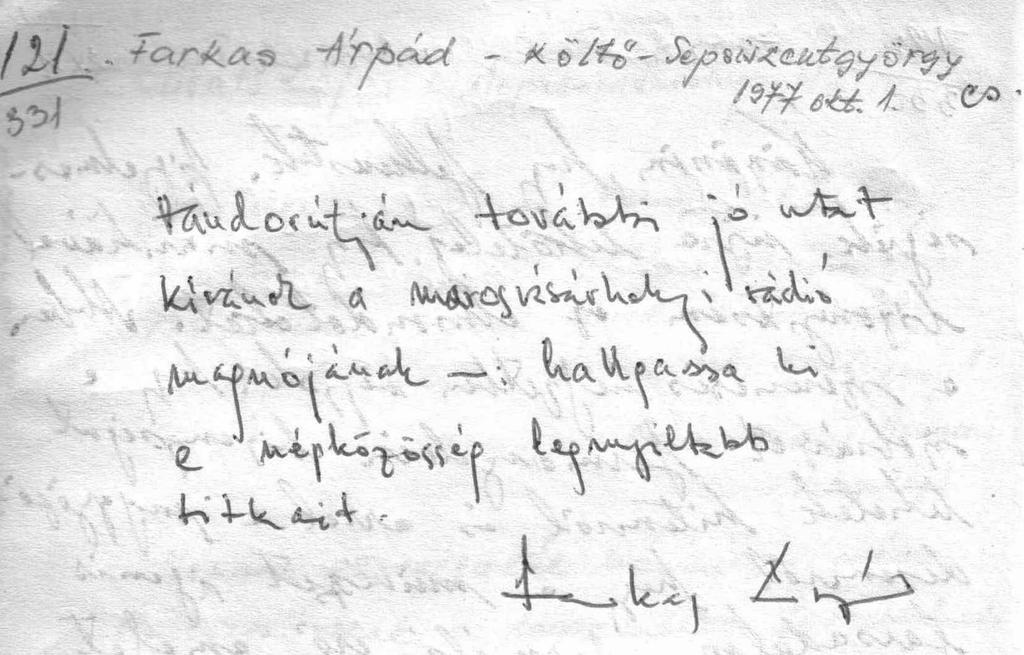 121. Farkas Árpád - költő - Sepsiszentgyörgy
331 1977 okt. 1. cs.
Vándorútján további jó utat
kívánok a marosvásárhelyi rádió
magnójának —: hallgassa ki
e népközösség legnyíltabb
titkait.
Farkas Árpád